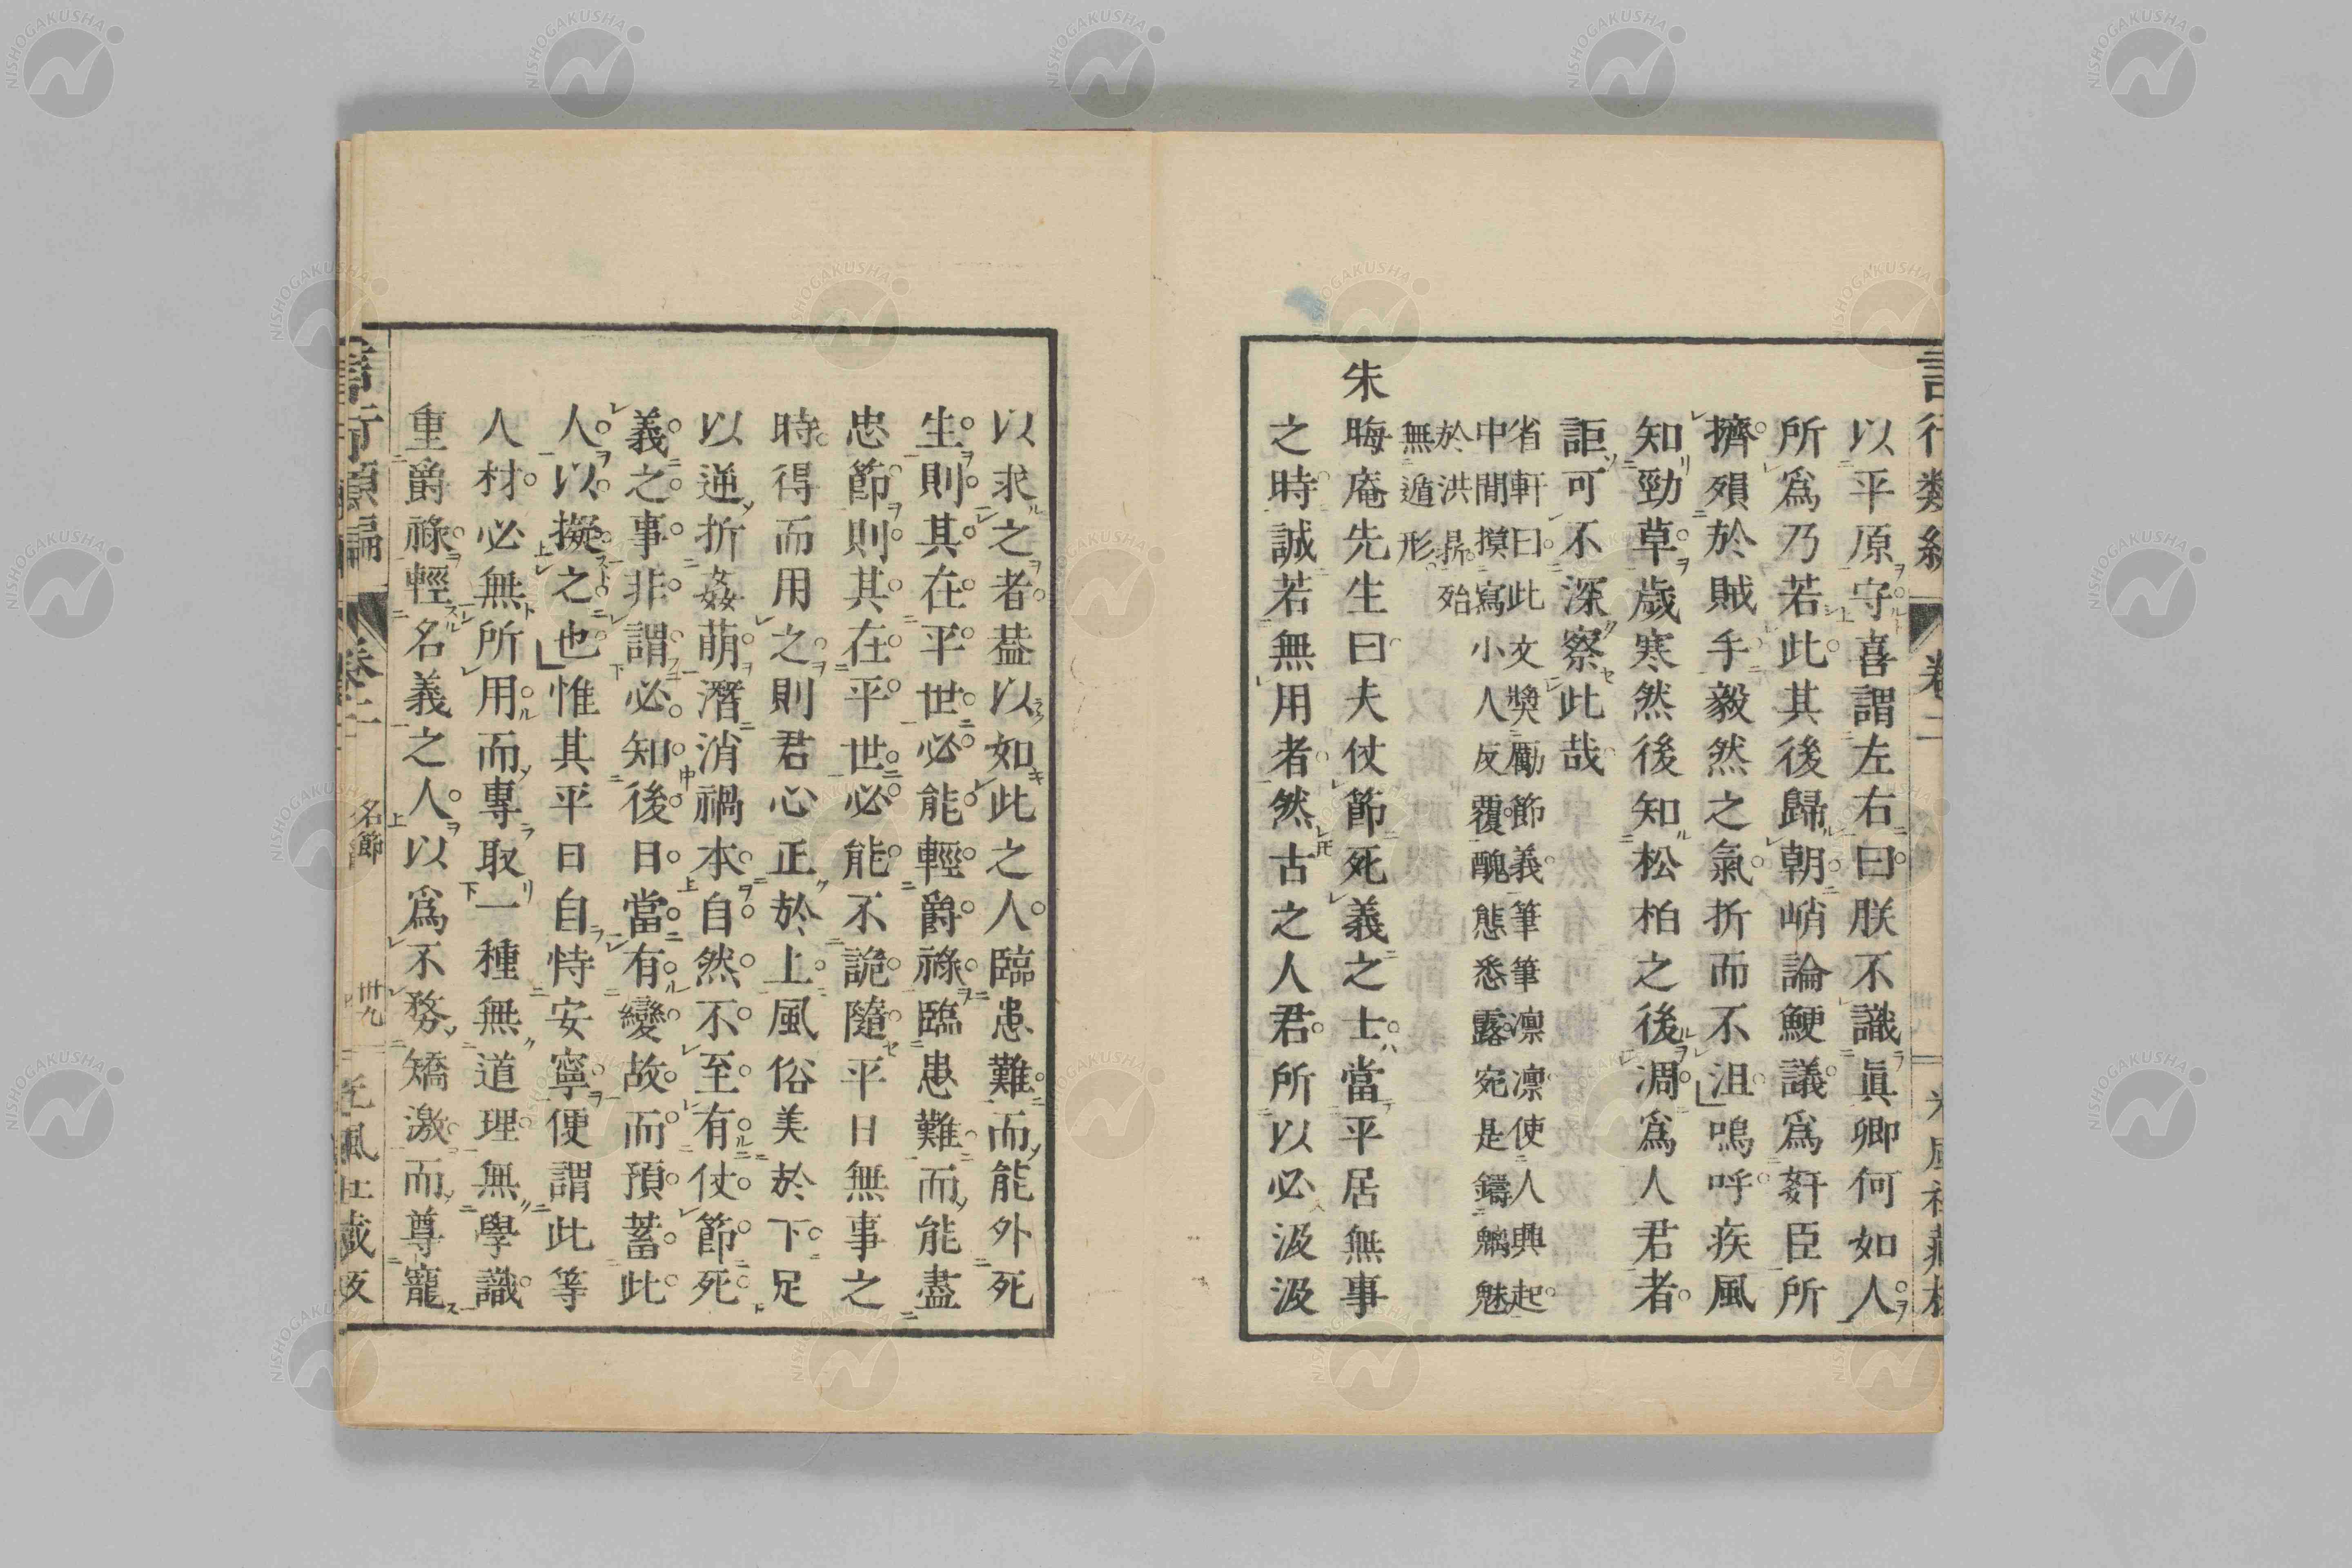 以平原守喜謂左右曰朕不識眞卿何如人
所爲乃若此其後歸朝峭論鯁議爲姧臣所
擠殞於賊手毅然之氣折而不沮嗚呼疾風
知勁草歲寒然後知松柏之後凋爲人君者
詎可不深察此哉
省軒曰此文奬勵節義筆筆凛凛使人興起
中間摸寫小人反覆醜態悉露宛是鑄魑魅
於洪鼎殆
無遁形
朱晦庵先生曰夫仗節死義之士當平居無事
之時誠若無用者然古之人君所以必汲汲
以求之者葢以如此之人臨患難而能外死
生則其在平世必能輕爵祿臨患難而能盡
忠節則其在平世必能不詭隨平日無事之
時得而用之則君心正於上風俗美於下足
以逆折姦萌潛消禍本自然不至有仗節死
義之事非謂必知後日當有變故而預蓄此
人以擬之也惟其平日自恃安寧便謂此等
人材必無所用而專取一種無道理無學識
重爵祿輕名義之人以爲不務矯激而尊寵
言行類編 卷二 名節 卅九
NISHOGAKUSHA